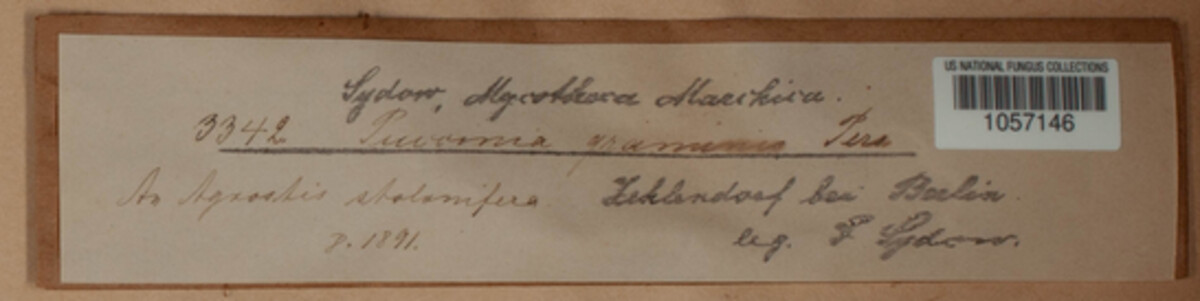 Sydow, Mycotheca Marchica.
3342 Puccinia graminis Pers
An Agrostis stolonifera Zehlendorf bei Berlin
1891. leg. P Sydow.
US NATIONAL FUNGUS COLLECTIONS
1057146